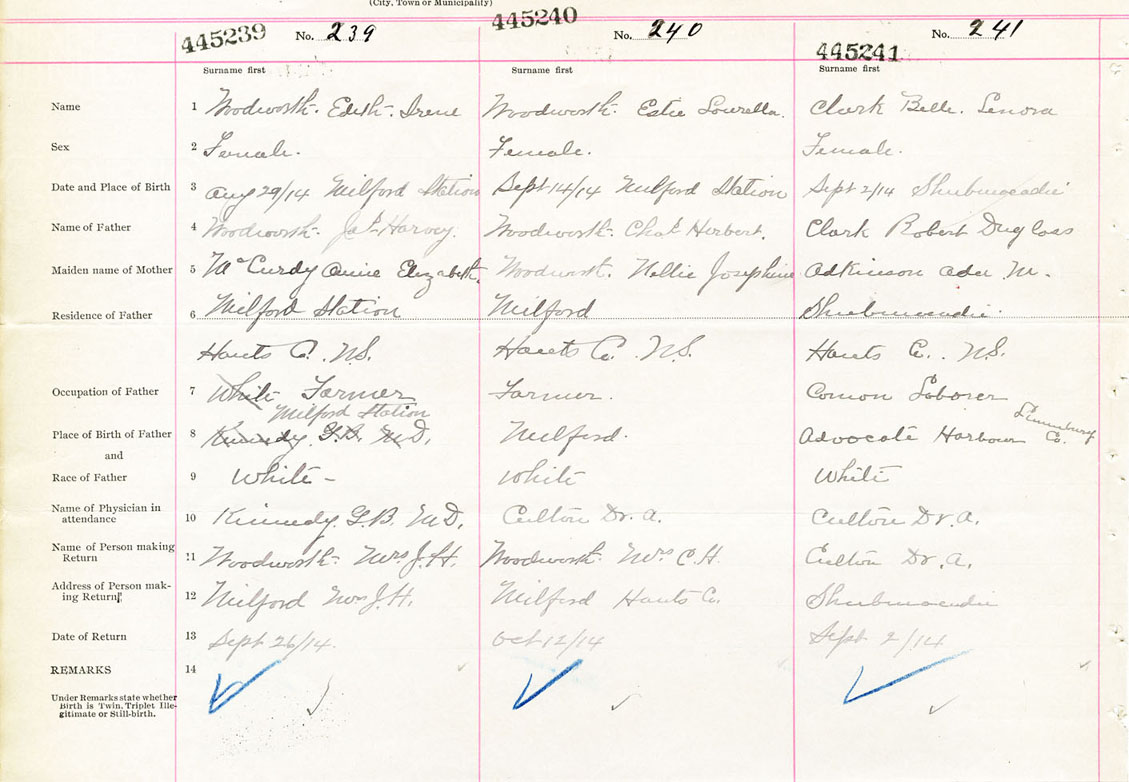 (City, Town or Municipality)
445239 No. 239 445240 No. 240 445241 No. 241
Surname first Surname first Surname first
Name 1 Woodworth. Edith. Irene Woodworth. Estie Lourella. Clark Belle. Lenora
Sex 2 Female. Female. Female.
Date and Place of Birth 3 Aug 29/14 Milford Station Sept 14/14 Milford Station Sept 2/14 Shubenacadie
Name of Father 4 Woodworth. Jas. Harvey. Woodworth. Chas Herbert. Clark Robert Duglass
Maiden name of Mother 5 McCurdy Annie Elizabeth. Woodworth. Nellie Josephine Adkinson Ada M.
Residence of Father 6 Milford Station Milford Shubenacadie
Hants Co. N.S. Hants Co. N.S. Hants Co. N.S.
Occupation of Father 7 White Farmer Farmer. Comon Laborer
Milford Station
Place of Birth of Father 8 Kennedy G.B. M.D. Milford. Advocate Harbour Co.
and
Race of Father 9 White - White White
Name of Physician in
attendance 10 Kennedy. G.B. M.D. Culton Dr. A. Culton Dr. A.
Name of Person making
Return 11 Woodworth. Mrs J.H. Woodworth. Mrs C.H. Culton Dr. A.
Address of Person mak-
ing Return 12 Milford Mrs J.H. Milford Hants Co. Shubenacadie
Date of Return 13 Sept 26/14. Oct 12/14 Sept 2/14
REMARKS 14
Under Remarks state whether
Birth is Twin, Triplet Ille-
gitimate or Still-birth.